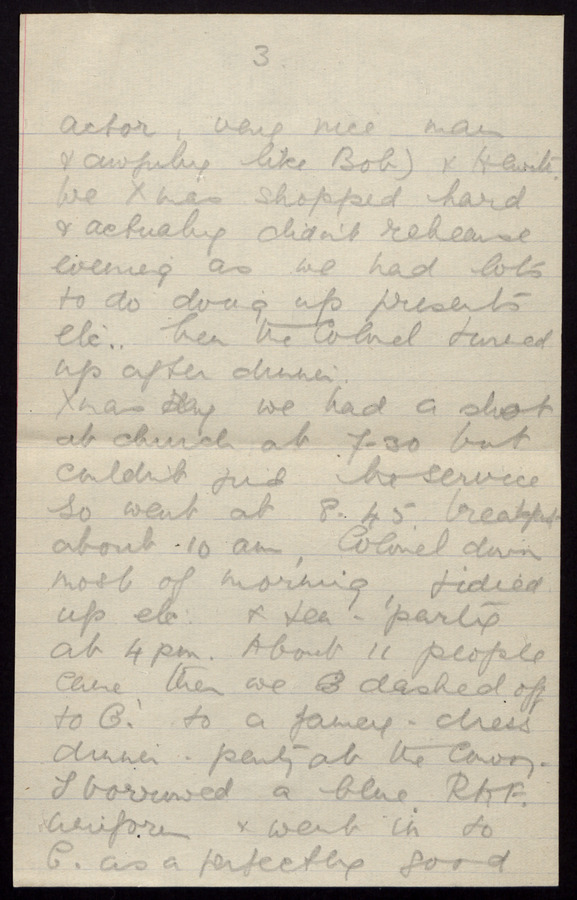 3.
actor, very nice man
& awfully like Bob) & Hewitt.
We Xmas shopped hard
& actually didn't rehearse
evening as we had lots
to do doing up presents
etc.. then the Colonel turned
up after dinner.
Xmas day we had a shot
at church at 7-30 but
couldn't find the service
so went at 8.45, breakfast
about 10 am, Colonel down
most of morning, tidied
up etc. & tea-party
at 4 pm. About 11 people
came then we 3 dashed off
to B. to a fancy-dress
dinner-party at the
I borrowed a blue R.A.F.
uniform & went in to
B. as a perfectly good